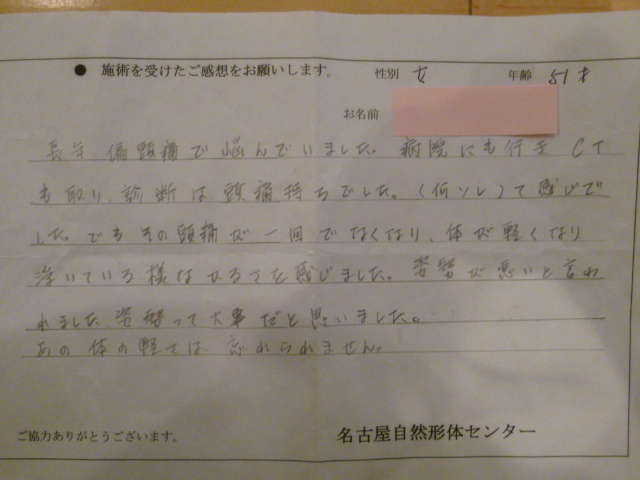 ● 施術を受けたご感想をお願いします。 性別 女 年齢 51才
お名前
長年 偏頭痛で悩んでいました。病院にも行き CT
も取り、診断は頭痛持ちでした。(何ソレ)て感じで
した。でもその頭痛が一回でなくなり、体が軽くなり
浮いている様なかるさを感じました。姿勢が悪いと言わ
れました 姿勢って大事だと思いました。
あの体の軽さは忘れられません。
ご協力ありがとうございます。 名古屋自然形体センター